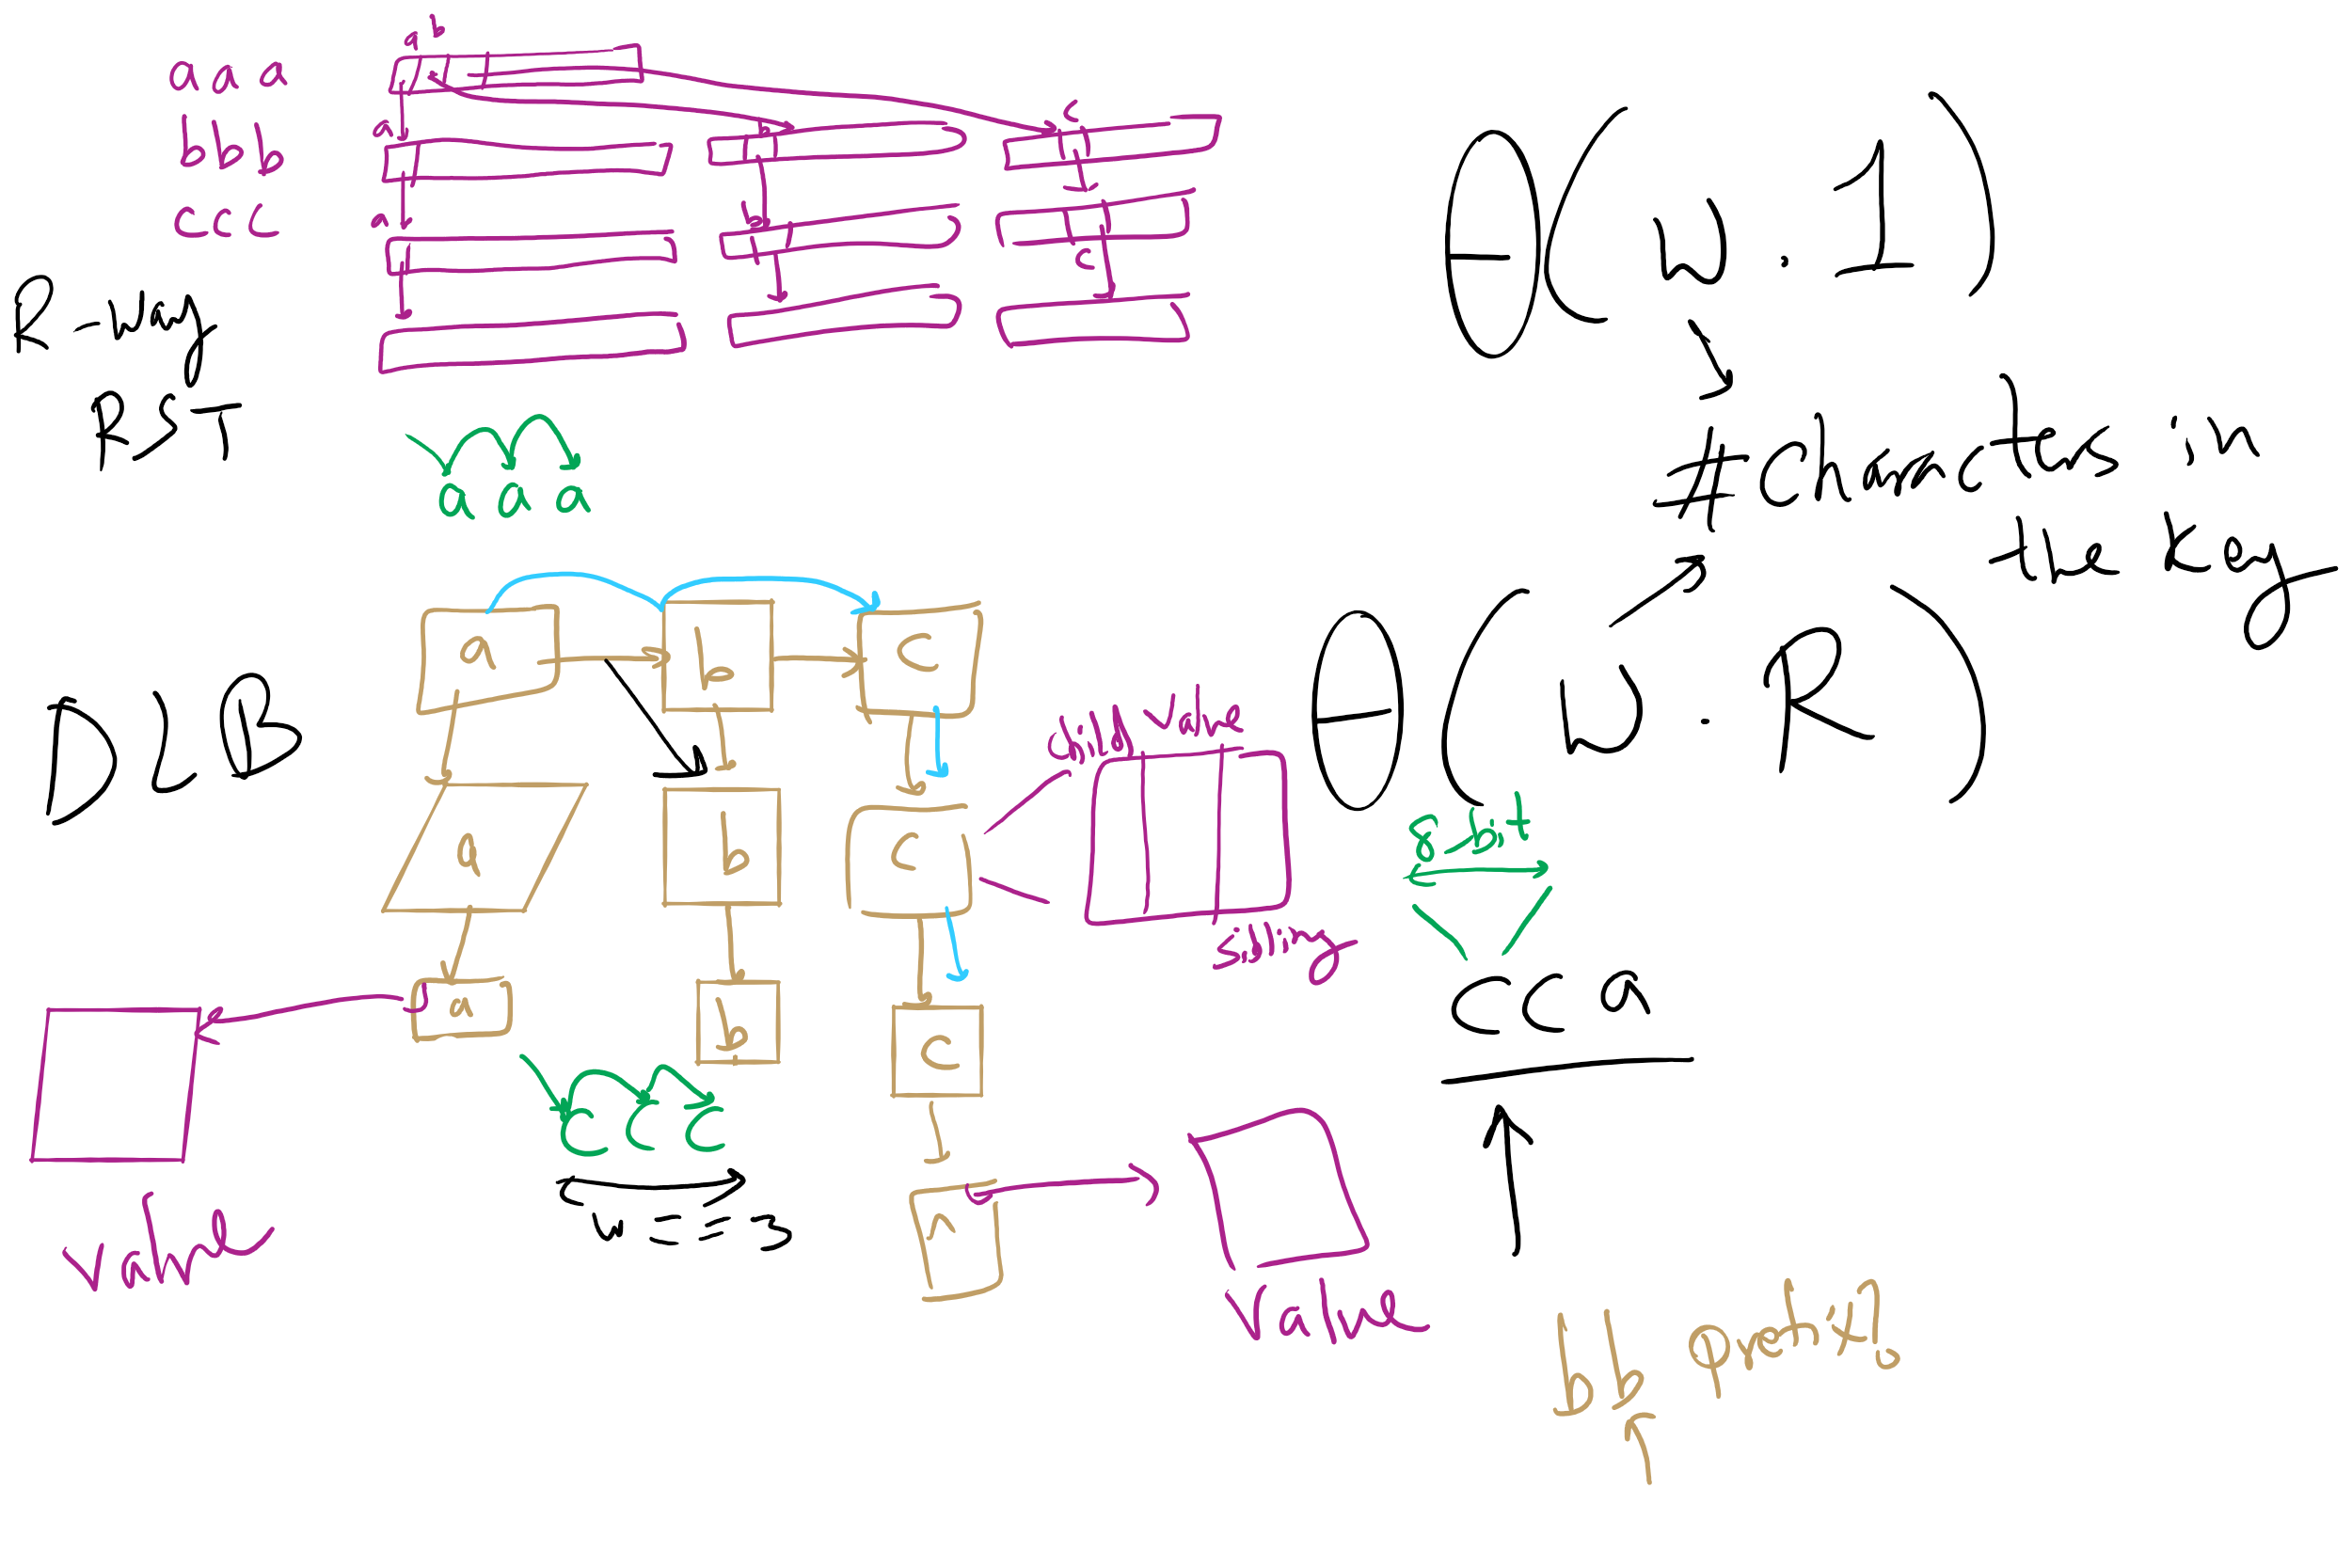 a b
aaa
bbb
ccc
a
b
c
a
b
c
R-way
RST
aaa
Θ(w.1)
#charactes in
the key
DLB
a b c
a b c
a b c
child value
sibling
Θ(w.R)
8-bit
cca
ccc
w == 3
^
value
value
bb prefix?